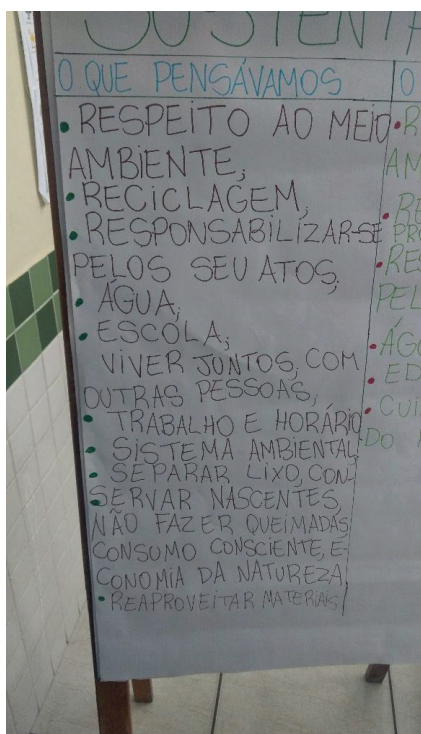 SUSTENTA
O QUE PENSÁVAMOS
• RESPEITO AO MEIO
AMBIENTE,
• RECICLAGEM,
• RESPONSABILIZAR-SE
PELOS SEU ATOS,
• ÁGUA,
• ESCOLA,
VIVER JUNTOS, COM
OUTRAS PESSOAS,
• TRABALHO E HORÁRIO
• SISTEMA AMBIENTAL,
• SEPARAR LIXO, CON-
SERVAR NASCENTES,
NÃO FAZER QUEIMADAS,
CONSUMO CONSCIENTE, E-
CONOMIA DA NATUREZA,
• REAPROVEITAR MATERIAIS
O
• R
AM
• RE
PR
• RES
PEL
• ÁGU
• ED
• CUI
DO